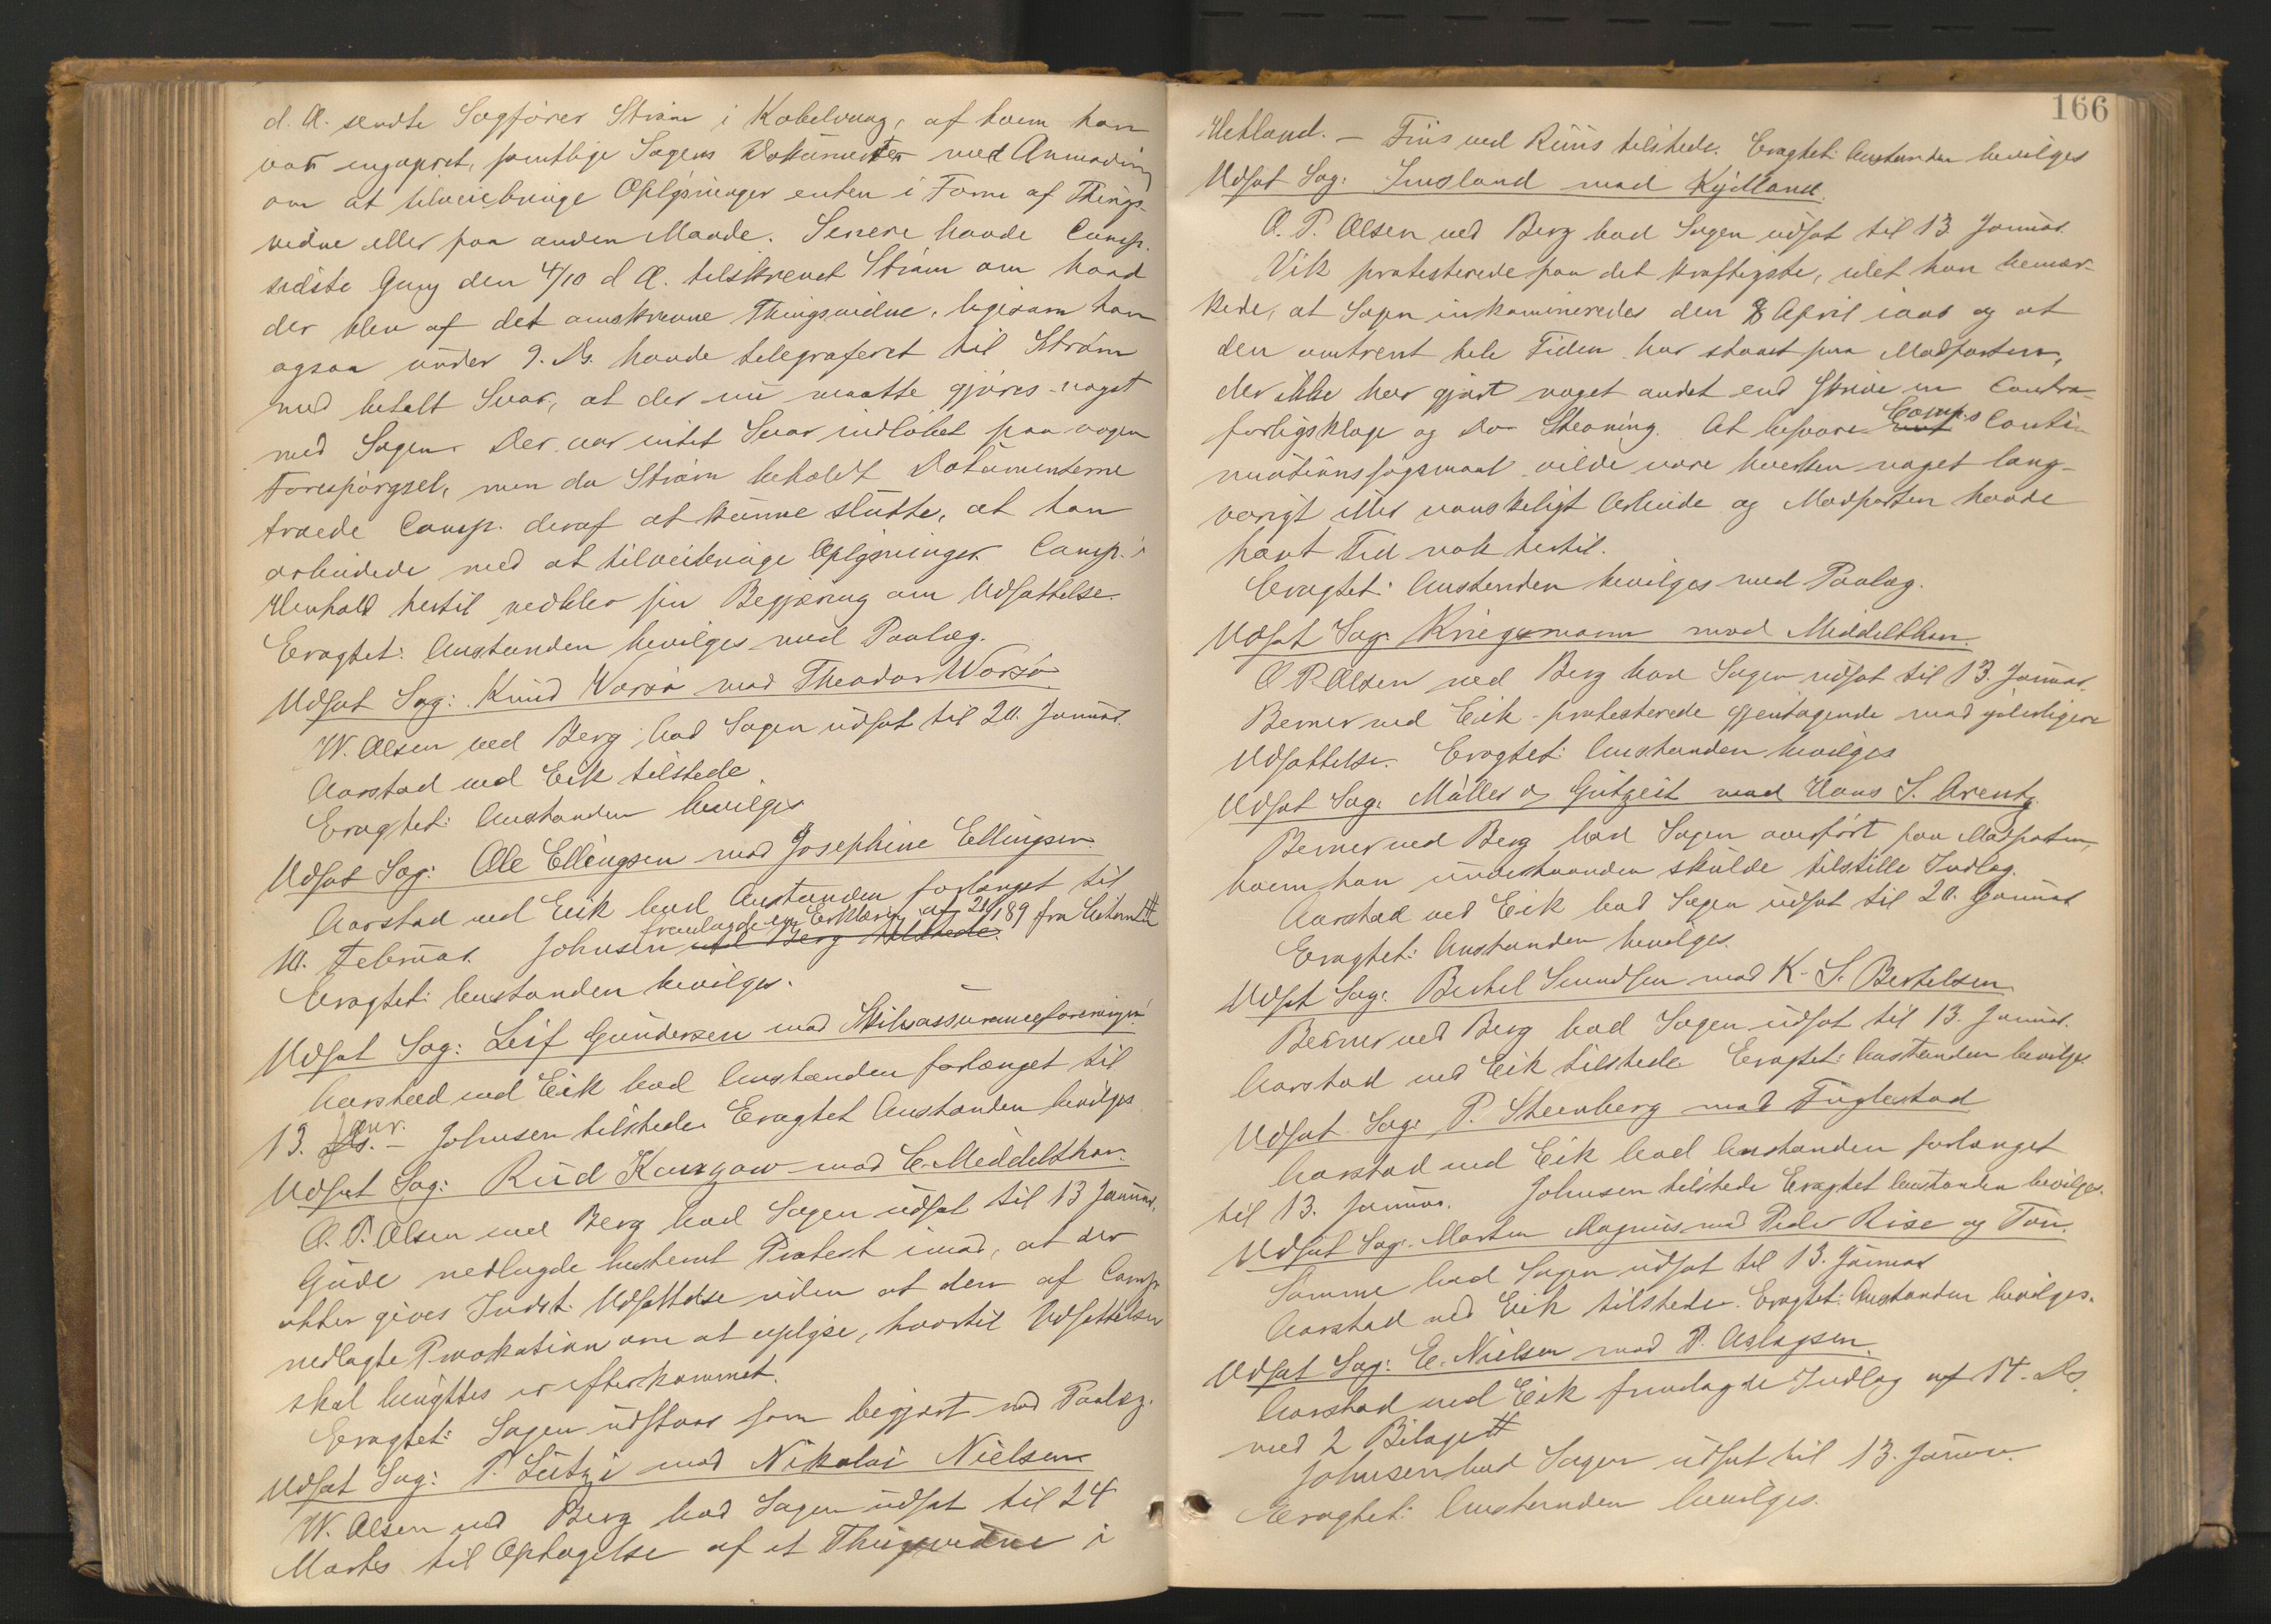 d. A. sendte Sagfører Strøm i Kabelvaag, af hvem han
var engageret, samtlige Sagens Dokumenter med Anmodning
om at tilveiebringe Oplysninger enten i Form af Things-
vidne eller paa anden Maade. Senere havde Comp.
sidste Gang den 4/10 d A. tilskrevet Strøm om hvad
der blev af det omskrevne Thingsvidne, ligesom han
ogsaa under 9. Ds. havde telegraferet til Strøm
med betalt Svar, at der nu maatte gjøres noget
med Sagen. Der var intet Svar indløbet paa nogen
Forespørgsel, men da Strøm beholdt Dokumenterne
troede Comp. deraf at kunne slutte, at han
arbeidede med at tilveiebringe Oplysninger. Comp. i
Henhold hertil vedblev sin Begjæring om Udsættelse.
Eragtet: Anstanden bevilges med Paalæg.
Udsat Sag: Knud Worsø mod Theodor Worsø
W. Olsen ved Berg bad Sagen udsat til 20. Januar.
Aarstad ved Eik tilstede.
Eragtet: Anstanden bevilges
Udsat Sag: Ole Ellingsen mod Josephine Ellingsen.
Aarstad ved Eik bad Anstanden forlænget til
fremlagde en Erklæring af 21/189 fra
10. Februar. Johnsen ved Berg tilstede.
Eragtet: Anstanden bevilges.
Udsat Sag: Leif Gundersen mod Skibsassuranceforeningen
Aarstad ved Eik bad Anstanden forlænget til
13. Janr. – Johnsen tilstede. Eragtet Anstanden bevilges
Udsat Sag: Rud Kanzow mod C. Middelthon.
O. P. Olsen ved Berg bad Sagen udsat til 13 Januar.
Gude nedlagde bestemt Protest imod, at der
atter gives Indst. Udsættelse uden at den af Comp.
nedlagte Provokation om at oplyse, hvortil Udsættelsen
skal benyttes er efterkommet.
Eragtet: Sagen udstaar som begjært med Paalæg.
Udsat Sag: P. Lützi mod Nikolai Nielsen
W. Olsen ved Berg bad Sagen udsat til 24
Marts til Optagelse af et Thingsvidne i
166
Hetland. – Friis ved Riiis tilstede. Eragtet: Anstanden bevilges
Udsat Sag: Imsland mod Kydland.
O. P. Olsen ved Berg bad Sagen udsat til 13 Januar.
Vik protesterede paa det kraftigste, idet han bemær-
kede, at Sagen inkamineredes den 8 April iaar og at
den omtrent hele Tiden har staaet paa Modparten,
der ikke har gjort noget andet end skrive en Contra-
forligsklage og do Stevning. At besvare Comp.s Conti-
nuationssøgsmaal vilde være hverken noget lang-
varigt eller vanskeligt Arbeide og Modparten havde
havt Tid nok hertil.
Eragtet: Anstanden bevilges med Paalæg.
Udsat Sag: Kriegsmann mod Middelthon.
O P. Olsen ved Berg bad Sagen udsat til 13. Januar.
Berner ved Eik protesterede gjentagende mod yderligere
Udsættelse. Eragtet: Anstanden bevilges
Udsat Sag: Møller & Gutzeit mod Hans S. Arentz.
Berner ved Berg bad Sagen overført paa Modparten,
hvem han underhaanden skulde tilstille Indlæg.
Aarstad ved Eik bad Sagen udsat til 20. Januar
Eragtet: Anstanden bevilges.
Udsat Sag: Bertel Svendsen mod K. S. Bertelsen.
Berner ved Berg bad Sagen udsat til 13. Januar.
Aarstad ved Eik tilstede Eragtet: Anstanden bevilges
Udsat Sag: P. Steenberg mod Fuglestad
Aarstad ved Eik bad Anstanden forlænget
til 13. Januar. Johnsen tilstede Eragtet Anstanden bevilges.
Udsat Sag: Morten Magnus mod Peder Rise og Tou.
Samme bad Sagen udsat til 13. Januar
Aarstad ved Eik tilstede. Eragtet: Anstanden bevilges.
Udsat Sag: E. Nielsen mod P. Aslagsen.
Aarstad ved Eik fremlagde Indlæg af 14. Ds.
med 2 Bilage #
Johnsen bad Sagen udsat til 13. Januar.
Eragtet: Anstanden bevilges.